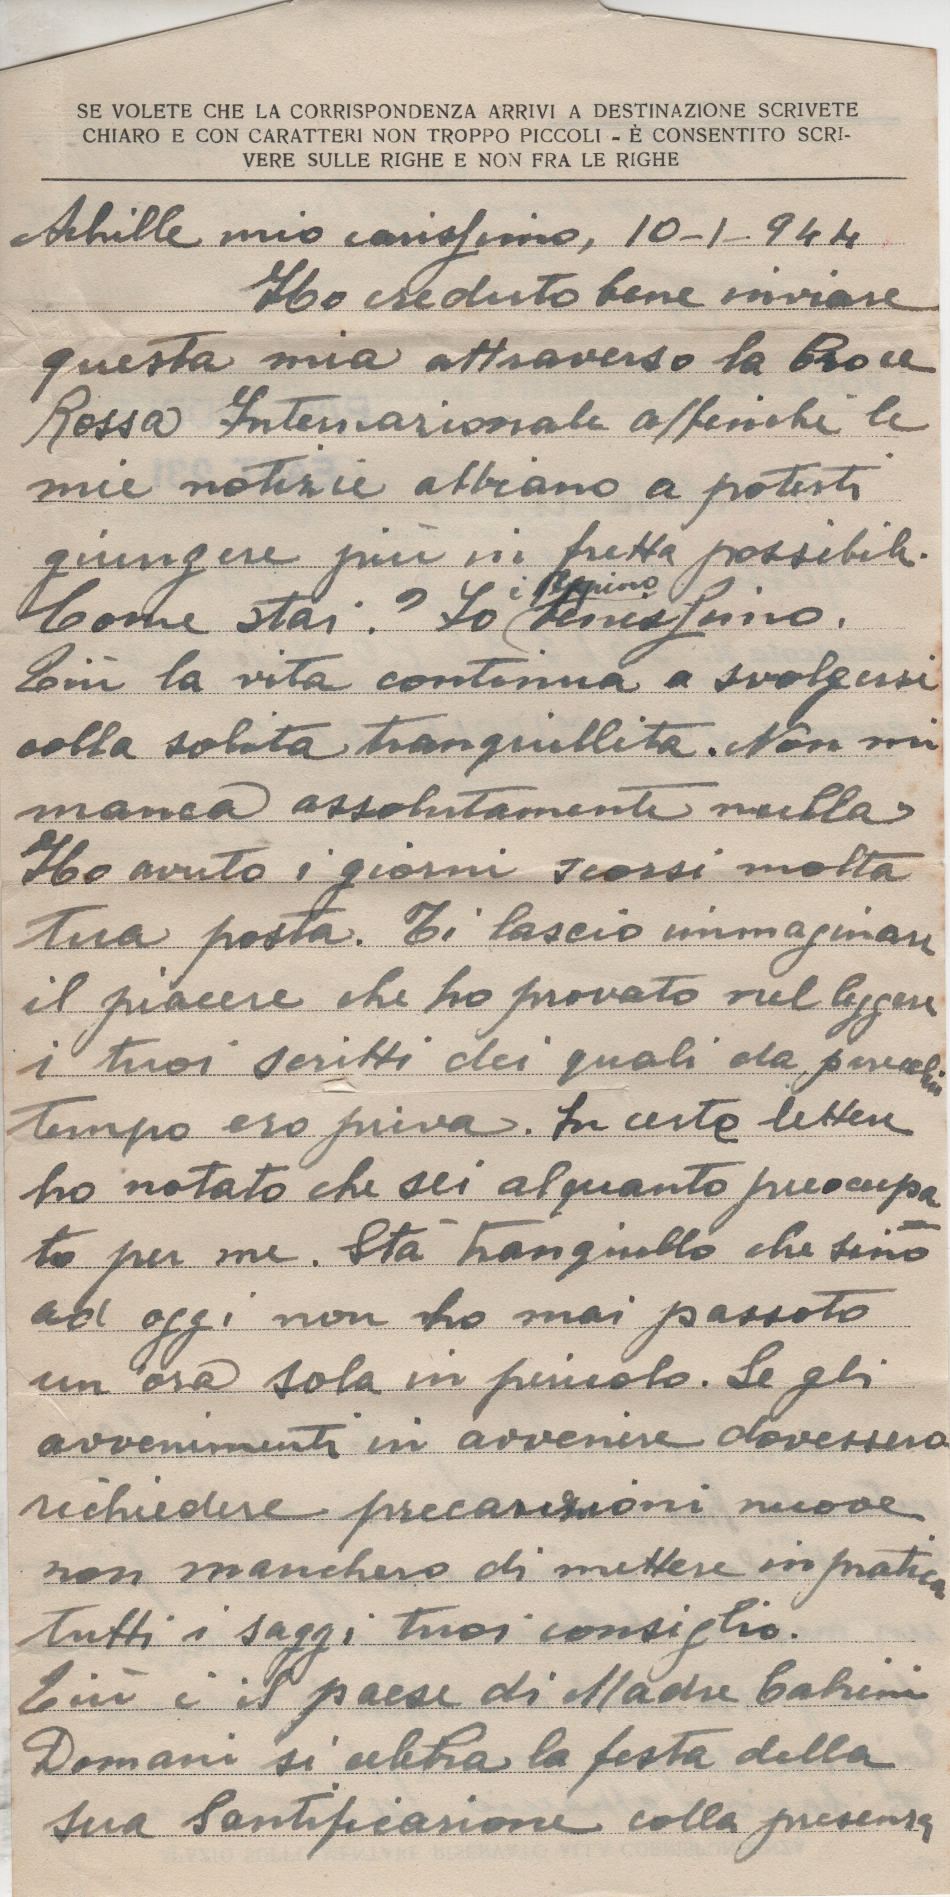 SE VOLETE CHE LA CORRISPONDENZA ARRIVI A DESTINAZIONE SCRIVETE
CHIARO E CON CARATTERI NON TROPPO PICCOLI - È CONSENTITO SCRI-
VERE SULLE RIGHE E NON FRA LE RIGHE
Achille mio carissimo, 10-1-944
Ho creduto bene inviare
questa mia attraverso la Croce
Rossa Internazionale affinché le
mie notizie abbiano a poterti
giungere più in fretta possibile.
Come stai? Io benissimo.
Quì la vita continua a svolgersi
colla solita tranquillità. Non mi
manca assolutamente nulla
Ho avuto i giorni scorsi molta
tua posta. Ti lascio immaginare
il piacere che ho provato nel leggere
i tuoi scritti dei quali da parecchio
tempo ero priva. In certe lettere
ho notato che sei alquanto preocupa
to per me. Stà tranquillo che sino
ad oggi non ho mai passato
un'ora sola in pericolo. Se gli
avvenimenti in avvenire dovessero
richiedere precauzioni nuove
non mancherò di mettere in pratica
tutti i saggi tuoi consiglio.
Quì è il paese di Madre Cabrini
Domani si celebra la festa della
sua Santificazione colla presenza